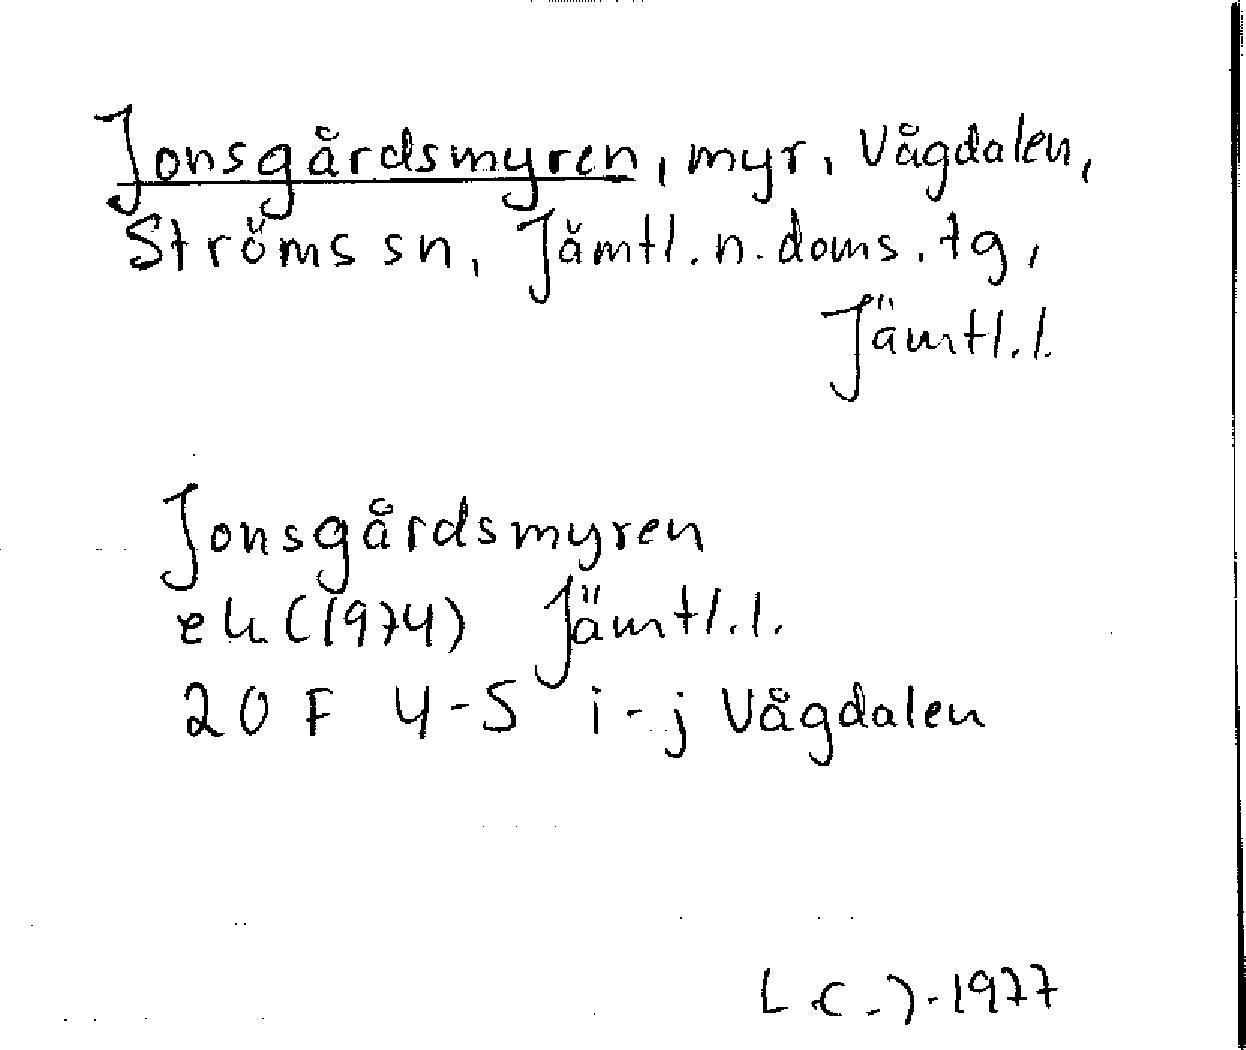 Jonsgårdsmyren, myr, Vågdalen,
Ströms sn, Jämtl. n. doms. tg,
Jämtl. l.
Jonsgårdsmyren
ek (1974) Jämtl. l.
20 F 4-5 i-j Vågdalen
1977